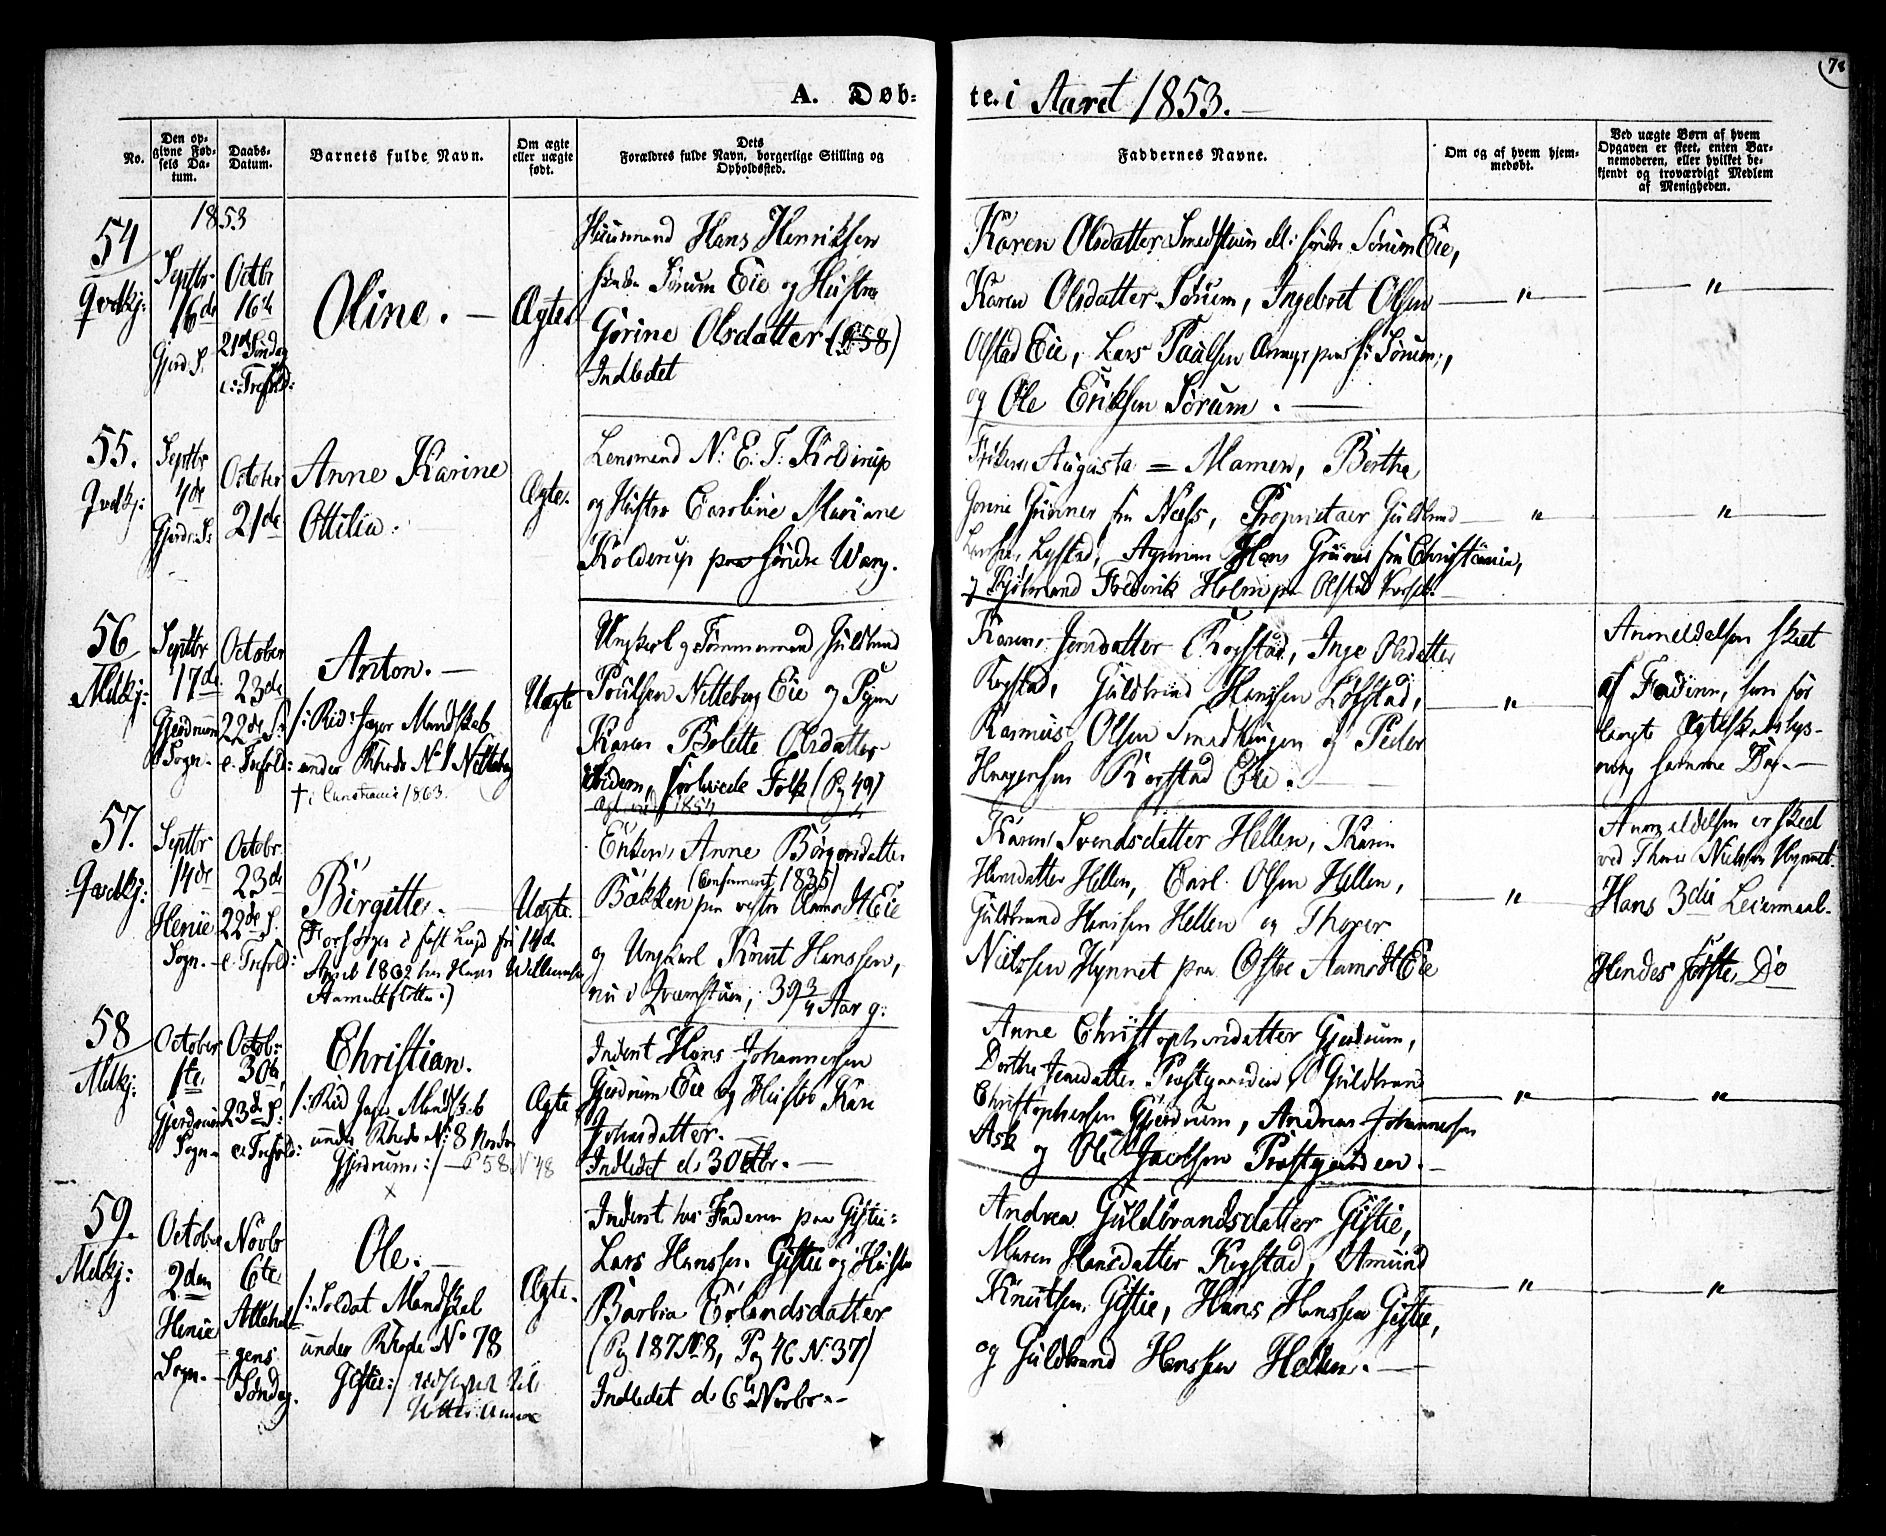 78
A. Døb-
te. i Aaret 1853.
No.
Den op-
givne Fød-
sels Da-
tum.
Daabs-
Datum.
Barnets fulde Navn.
Om ægte
eller uægte
født.
Dets
Forældres fulde Navn, borgerlige Stilling og
Opholdssted.
Faddernes Navne.
Om og af hvem hjem-
medøbt.
Ved uægte Børn af hvem
Opgaven er skeet, enten Bar-
nemoderen, eller hvilket be-
kjendt og troværdigt Medlem
af Menigheden.
1853
54
Qvdkj:
Septbr
16de
Gjerd. S.
Octbr
16de
21de Søndag
e: Trefold:
Oline. —
Ægte
Huusmand Hans Henriksen
søndre Sørum Eie og Hustro
Gorine Olsdatter (P 58)
Indledet
Karen Olsdatter Smedstuen søndre Sørum Eie,
Karen Olsdatter Sørum, Ingebret Olsen
Olstad Eie, Lars Paulsen paa Sørum,
og Ole Eriksen Sørum. —
"
"
55.
Qvdkj:
Septbr
4de
Gjerd. S.
October
21de
Anne Karine
Ottilia.
Ægte.
Lensmand N: E: T: Kolderup
og Hustro Caroline Mariane
Kolderup paa søndre Wang.
Augusta = Mamen, Berthe
Gorine Grüner fra Næss, Proprietair Guldbrand
Lystad, Hans Grüner fra Christiania,
og Frederik Holm paa Olstad
"
"
56
Mdkj:
Septbr
17de
Gjerdrum
Sogn. -
October
23de
22de S.
e. Trefold:
Anton. —
/: Rid: Jæger Mandskab
under Rhode No 1 Nitteberg
† i Christiania 1863.
Uægte
Ungkarl og Tømmermand Guldbrand
Poulsen Nitteberg Eie og Pigen
Karen Bolette Olsdatter
ibidem, forlovede Folk (Pag 49)
1854
Karen Jensdatter Rogstad, Inge Olsdatter
Rogstad, Guldbrand Hansen Løfstad,
Rasmus Olsen Smedhaugen og Peder
Haagensen Rogstad Eie. -
"
Anmeldelsen skeet
af Faderen, som for
langte Ægteskabslys-
ning samme Dag. —
57.
Qvdkj:
Septbr
14de
Henie
Sogn. -
Octobr.
23de
22de S.
e. Trefold:
Birgitte. -
April 1862
Uægte
Enken Anne Børgersdatter
(Confirmeret 1835)
Bakken paa vestre Aamodt Eie
og Ungkarl Knut Hanssen,
nu i 39 3/4 Aar g:
Karen Svendsdatter Hellen, Karen
Hansdatter Hellen, Carl Olsen Hellen,
Guldbrand Hanssen Hellen og Thorer
Nielssen Hynnet paa Østre Aamodt Eie
"
Anmeldelsen er skeet
ved Thorer Nielssen Hynnet.
Hans 3die Leiermaal.
Hendes første Do
58
Mdkj:
October
1ste
Gjerdrum
Sogn -
Octob:
30te
23de S:
e: Trefold:
Christian.
/: Rid Jæger Mandskab
under Rhode No: 8 Nordre
Gjerdrum :/ — P 58 N 48
x
Ægte
Inderst Hans Johannessen
Gjerdrum Eie og Hustro Kari
Johnsdatter. —
Indledet d. 30 Octbr. —
Anne Christophersdatter Gjerdrum,
Dorthe Jensdatter Præstgaarden, Guldbrand
Christophersen Gjerdrum, Andreas Johannessen
Ask og Ole Jacobsen Præstgaarden. —
"
"
59.
Mdkj:
October
2den
Henie
Sogn. -
Novbr
6te
Allehel-
gens
Søndag.
Ole. —
/: Soldat Mandskab
under Rhode No 78
Gistie :/
Ægte.
Inderst hos Faderen paa Gistie:
Lars Hanssen Gistie og Hustro
Barbra Erlandsdatter
(Pag 187 N 8, Pag 46 N. 37)
Indledet d. 6te Novbr. -
Andrea Guldbrandsdatter Gistie,
Maren Hansdatter Rogstad, Amund
Knutsen Gistie, Hans Hanssen Gistie,
og Guldbrand Hanssen Hellen. —
"
"